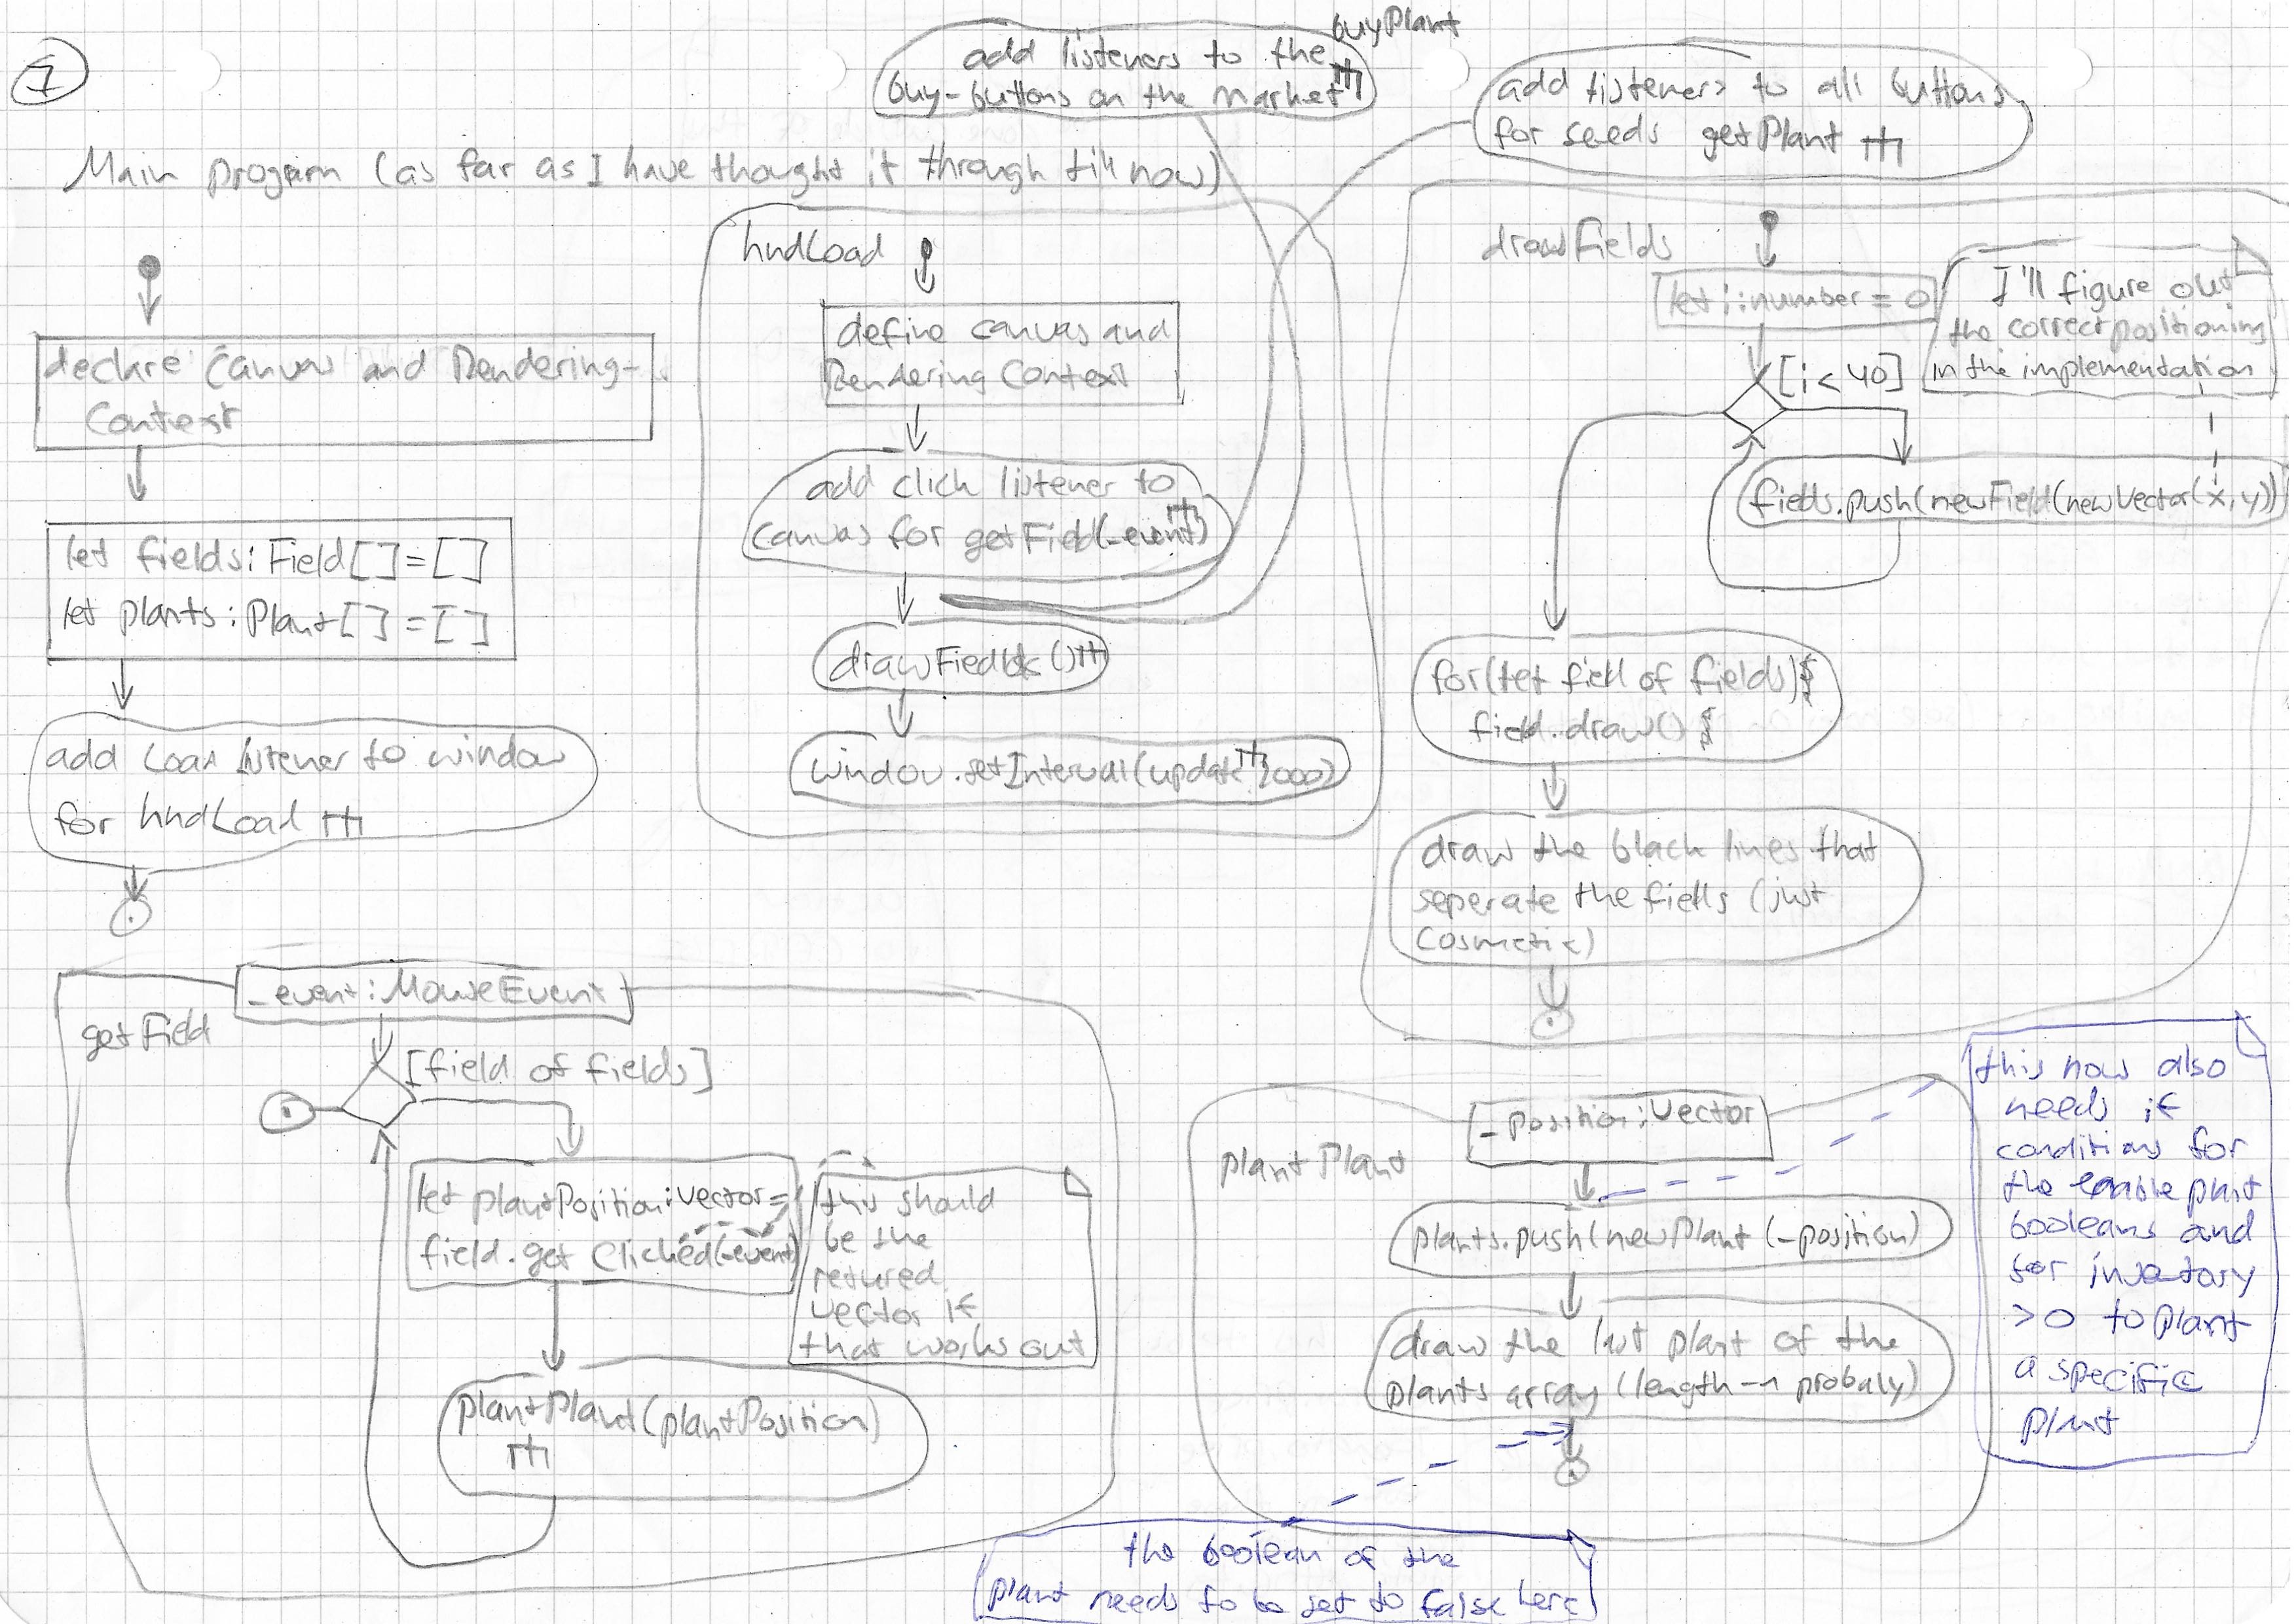 7
Main program (as far as I have thought it through till now)
buyPlant
add listeners to the
buy-buttons on the market
add listeners to all buttons
for seeds getPlant
declare Canvas and Rendering-
Context
let fields: Field[]=[]
let plants: Plant[]=[]
add Load listener to window
for hndLoad
hndLoad
define canvas and
Rendering Context
add click listener to
canvas for getField(_event)
drawFields()
window.setInterval(update, 2000)
drawFields
let i:number=0
I'll figure out
the correct positioning
in the implementation
[i<40]
fields.push(newField(newVector(x,y))
for(let field of fields){
field.draw() }
draw the black lines that
seperate the fields (just
cosmetic)
getField
_event: MouseEvent
[field of fields]
let plantPosition: Vector=
field.get Clicked(_event)
this should
be the
retured
vector if
that works out
plantPlant(plantPosition)
plantPlant
_position: Vector
plants.push(newPlant(_position)
draw the last plant of the
plants array (length-1 probaly)
this now also
needs if
conditions for
the plant
booleans and
for inventory
>0 to plant
a specific
plant
the boolean of the
plant needs to be set to false here